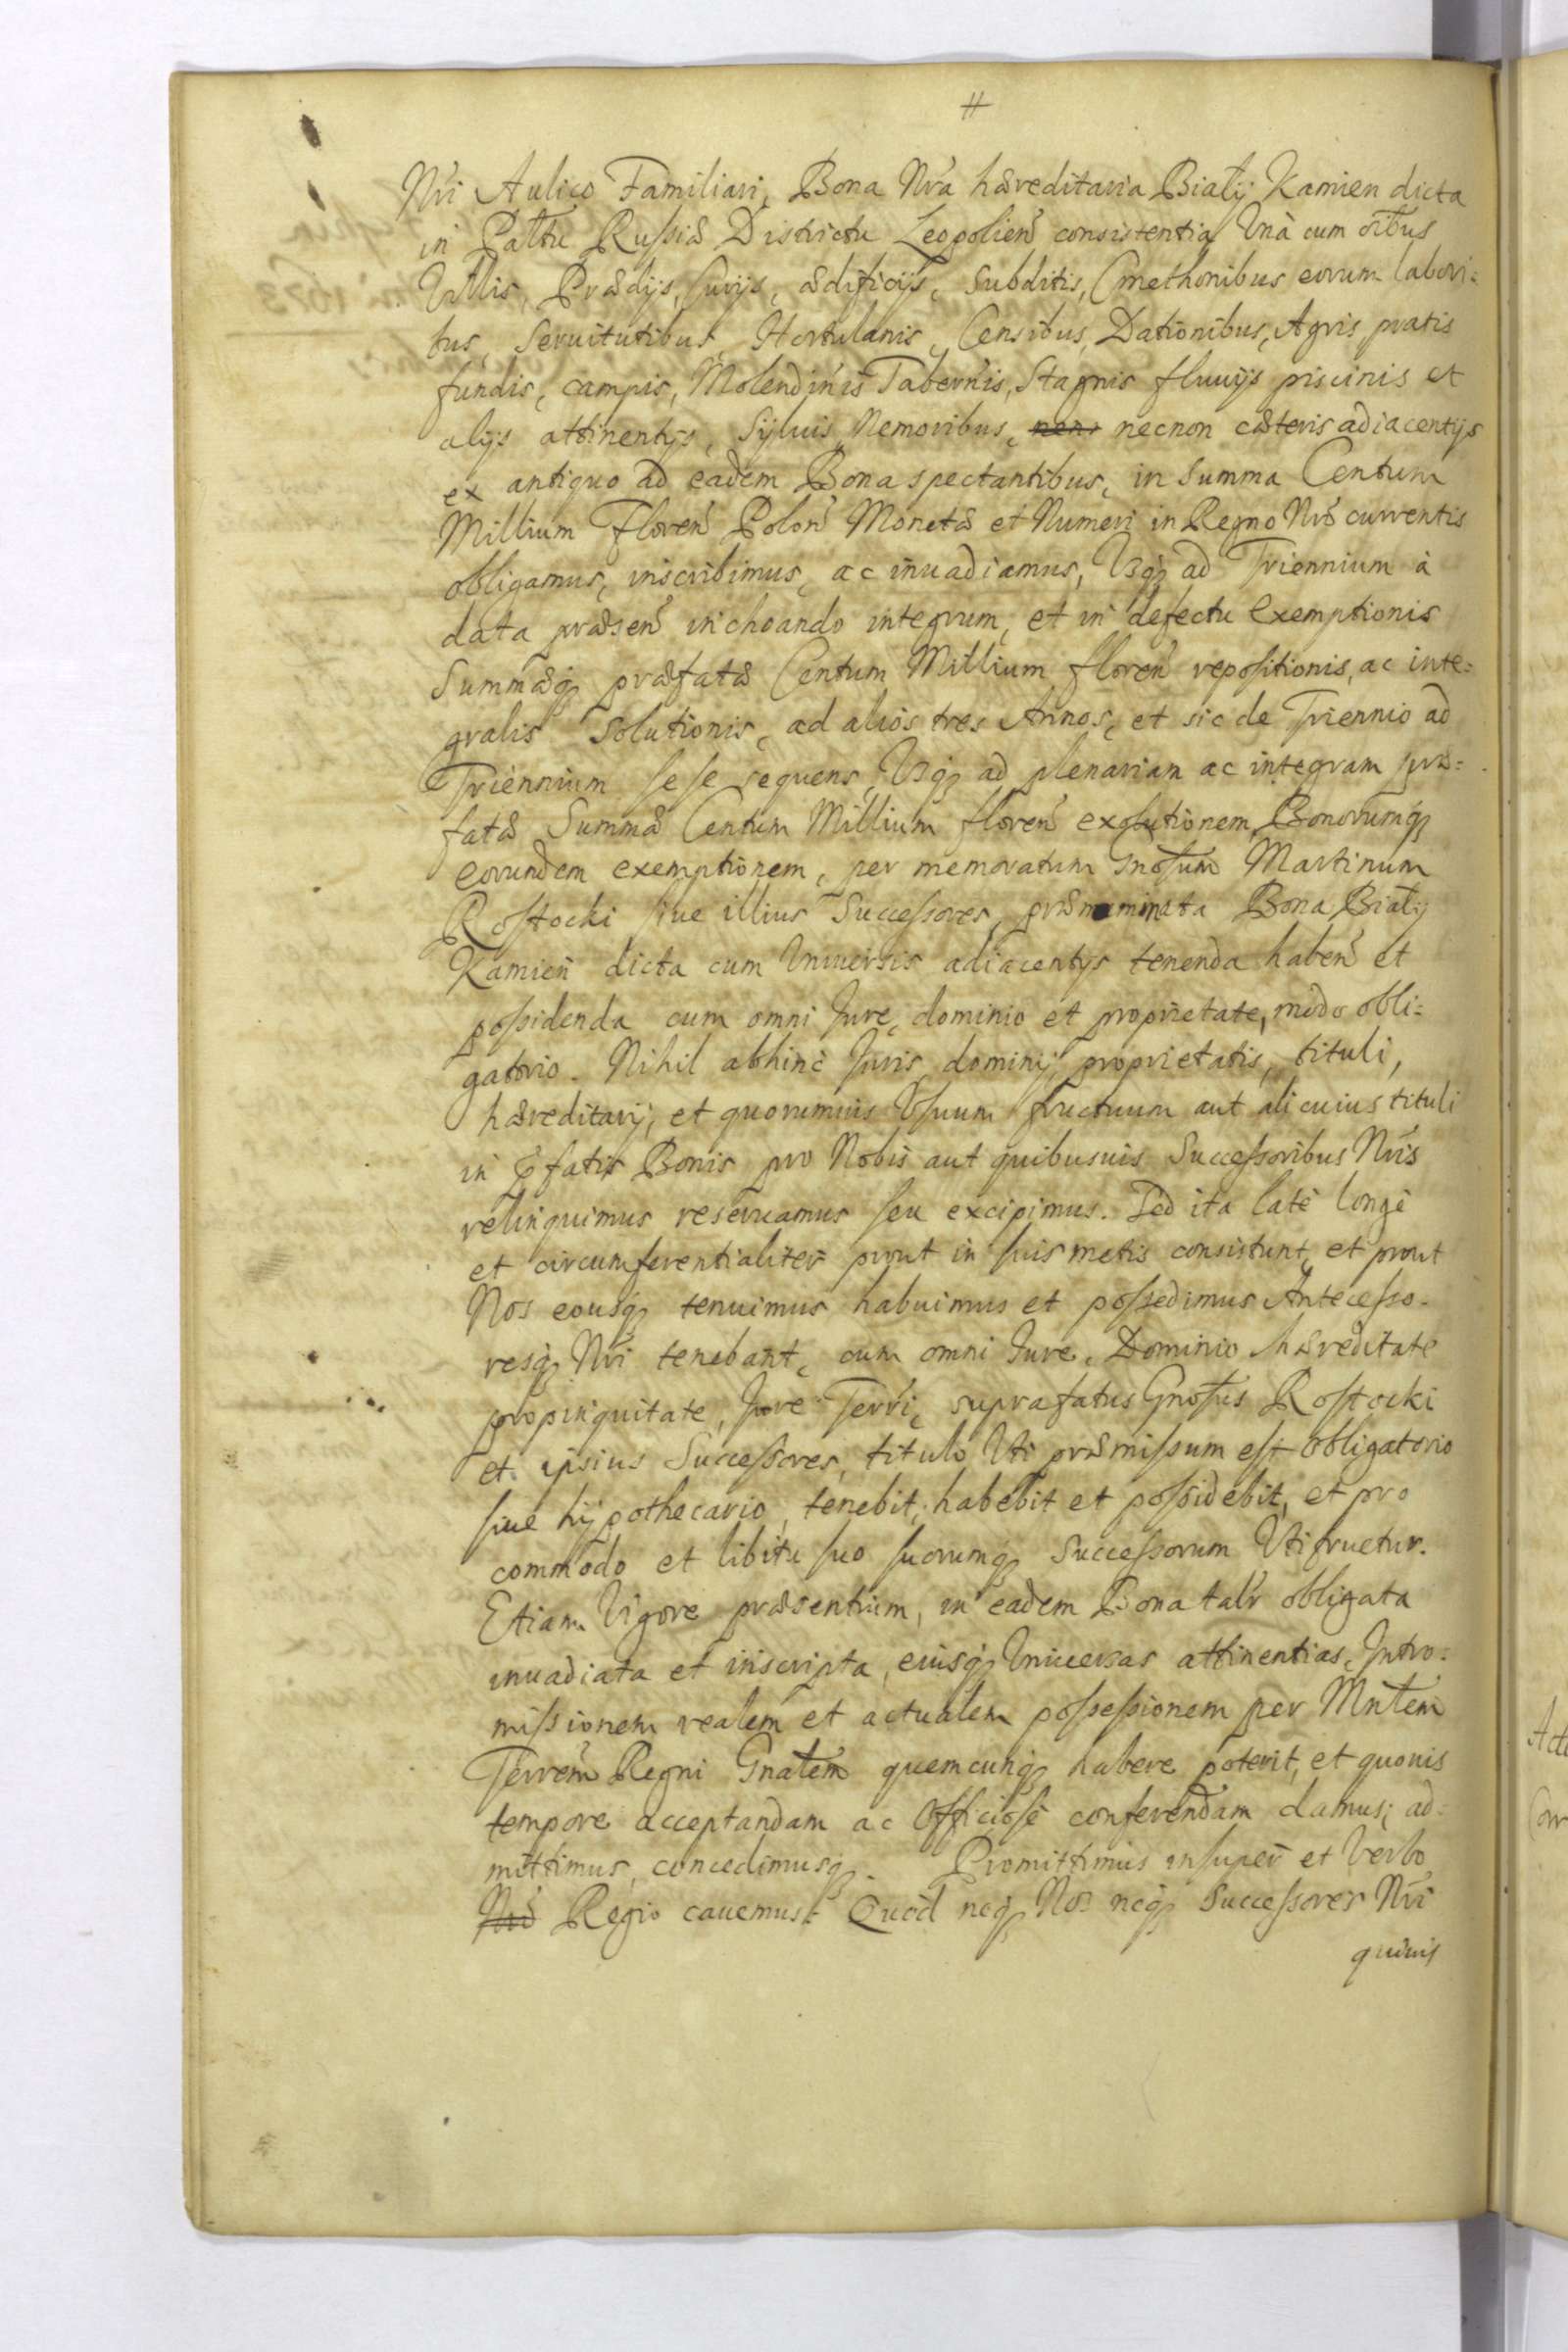 #
Nri Aulico Familiari, Bona Nra hæreditaria Biały Kamien dicta
in Pałtu Russiæ Districtu Leopolien consistentia Unà cum oibus
Villis, Prædijs, Curijs, ædificijs, Subditis, Cmethonibus eorum labori=
bus, Seruitutibus, Hortulanis, Censibus, Dationibus, Agris pratis
fundis, campis, Molendinis Tabernis, Stagnis fluuijs piscinis et
alijs attinentijs, Syluis Nemoribus, necnon cæteris adiacentijs
ex antiquo ad eadem Bona spectantibus, in Summa Centum
Millium Floren Polon Monetæ et Numeri in Regno Nro currentis
obligamus, inscribimus, ac inuadiamus, Usq ad Triennium à
data præsen inchoando integrum, et in defectu exemptionis
Summæq præfatæ Centum Millium floren repositionis, ac inte=
gralis Solutionis, ad alios tres Annos, et sic de Triennio ad
Triennium se se sequens, Usq ad plenariam ac integram præ=
fatæ Summæ Centum Millium floren exolutionem, Bonorumq
eorundem exemptionem, per memoratum Gnosum Martinum
Rostocki siue illius Successores, prænominata Bona Biały
Kamien dicta cum Uniuersis adiacentijs tenenda haben et
possidenda cum omni Jure, dominio et proprietate, modo obli=
gatorio. Nihil abhinc Juris, dominij, proprietatis, tituli,
hæreditarij, et quorumuis Usuum fructuum aut alicuius tituli
in pfatis Bonis pro Nobis aut quibusuis Successoribus Nris
relinquimus reseruamus seu excipimus. Sed ita latè longè
et circumferentialiter prout in suis metis consistunt, et prout
Nos eousq tenuimus habuimus et possedimus Antecesso=
resq Nri tenebant, cum omni Jure, Dominio hæreditate
propinquitate, Jure Terri, suprafatus Gnosus Rostocki
et ipsius Successores, titulo Uti præmissum est obligatorio
siue hypothecario, tenebit, habebit et possidebit, et pro
commodo et libitu suo suorumq Successorum Utifruetur.
Etiam Vigore præsentium, in eadem Bona talr obligata
inuadiata et inscripta, eiusq Uniuersas attinentias, Intro=
missionem realem et actualem possessionem per Mntem
Terrem Regni Gnalem quemcunq habere poterit, et quouis
tempore acceptandam ac Officiosè conferendam damus, ad=
mittimus, concedimusq. Promittimus insuper et Verbo
Nro Regio cauemus: Quòd neq Nos neq Successores Nri
quiuis